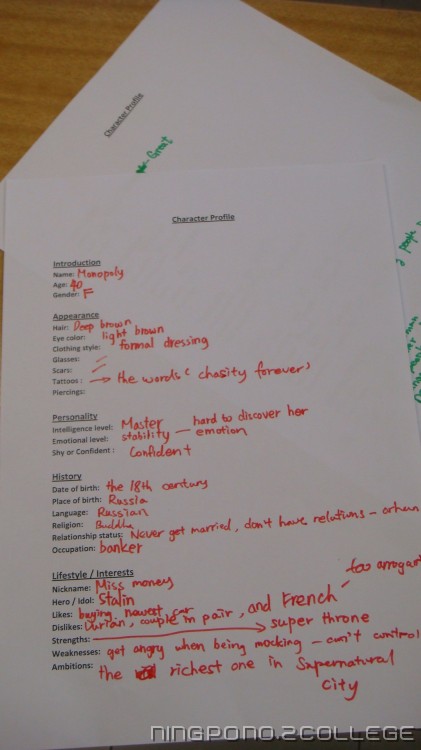 Character Profile
Mr. Great
Character Profile
Introduction
Name: Monopoly
Age: 40
Gender: F
Appearance
Hair: Deep brown
Eye color: light brown
Clothing style: formal dressing
Glasses:
Scars:
Tattoos: → the words ( chasity forever)
Piercings:
Personality
Intelligence level: Master
Emotional level: stability — hard to discover her emotion
Shy or Confident: Confident
History
Date of birth: the 18th century
Place of birth: Russia
Language: Russian
Religion: Buddha
Relationship status: Never get married, don't have relations -
Occupation: banker
Lifestyle / Interests
Nickname: Miss money
Hero / Idol: Stalin
Likes: buying newest car
Dislikes: Durian, couple in pair, and French - too
Strengths: → super throne
Weaknesses: get angry when being mocking - can't control
Ambitions: the richest one in Supernatural
City
NINGPONO.2COLLEGE